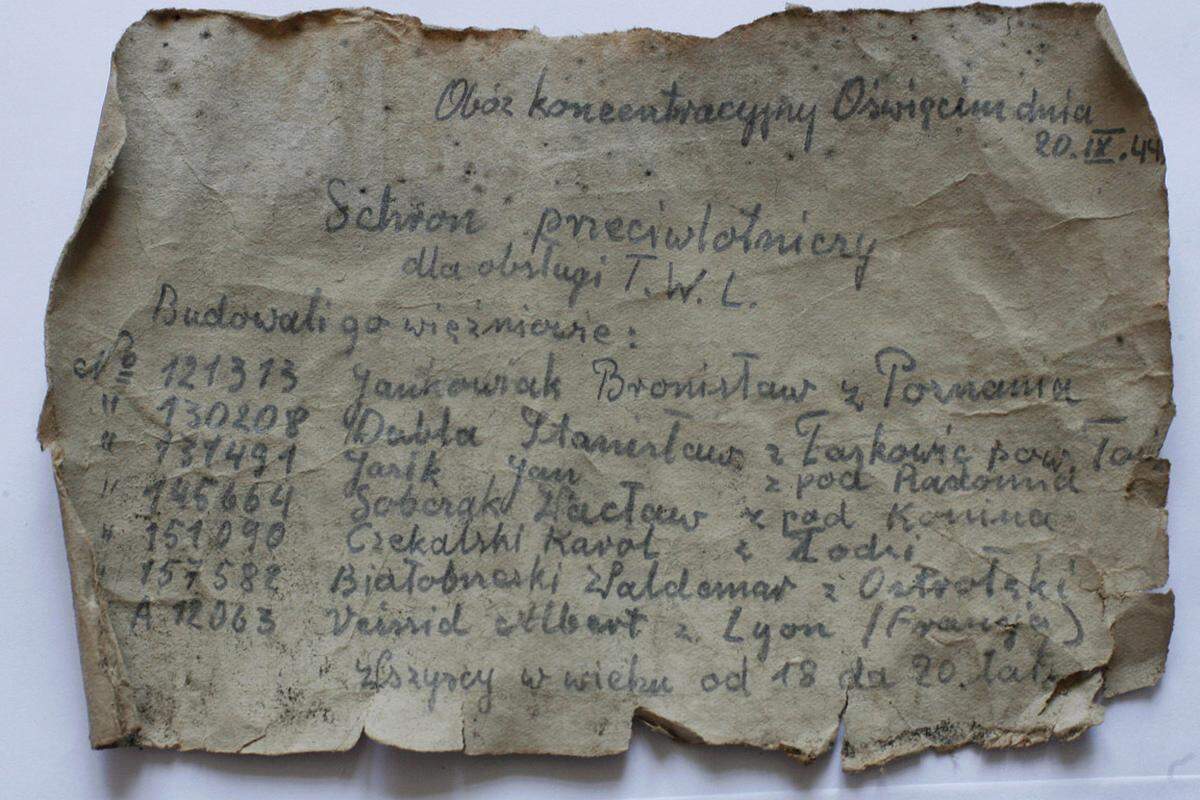 Obóz koncentracyjny Oświęcim dnia
20.IX.44.
Schron przeciwlotniczy
dla obsługi T.W.L.
Budowali go więźniowie:
No 121313 Jankowiak Bronisław z Poznania
" 130208 Dubla Stanisław z Łaskowic pow.
" 131491 Jasik Jan z pod Radomia
" 145664 Sobczak Wacław z pod Konina
" 151090 Czekalski Karol z Łodzi
" 157582 Białobrzeski Waldemar z Ostrołęki
A 12063 Veissid Albert z Lyon (Francja)
Wszyscy w wieku od 18 do 20 lat.